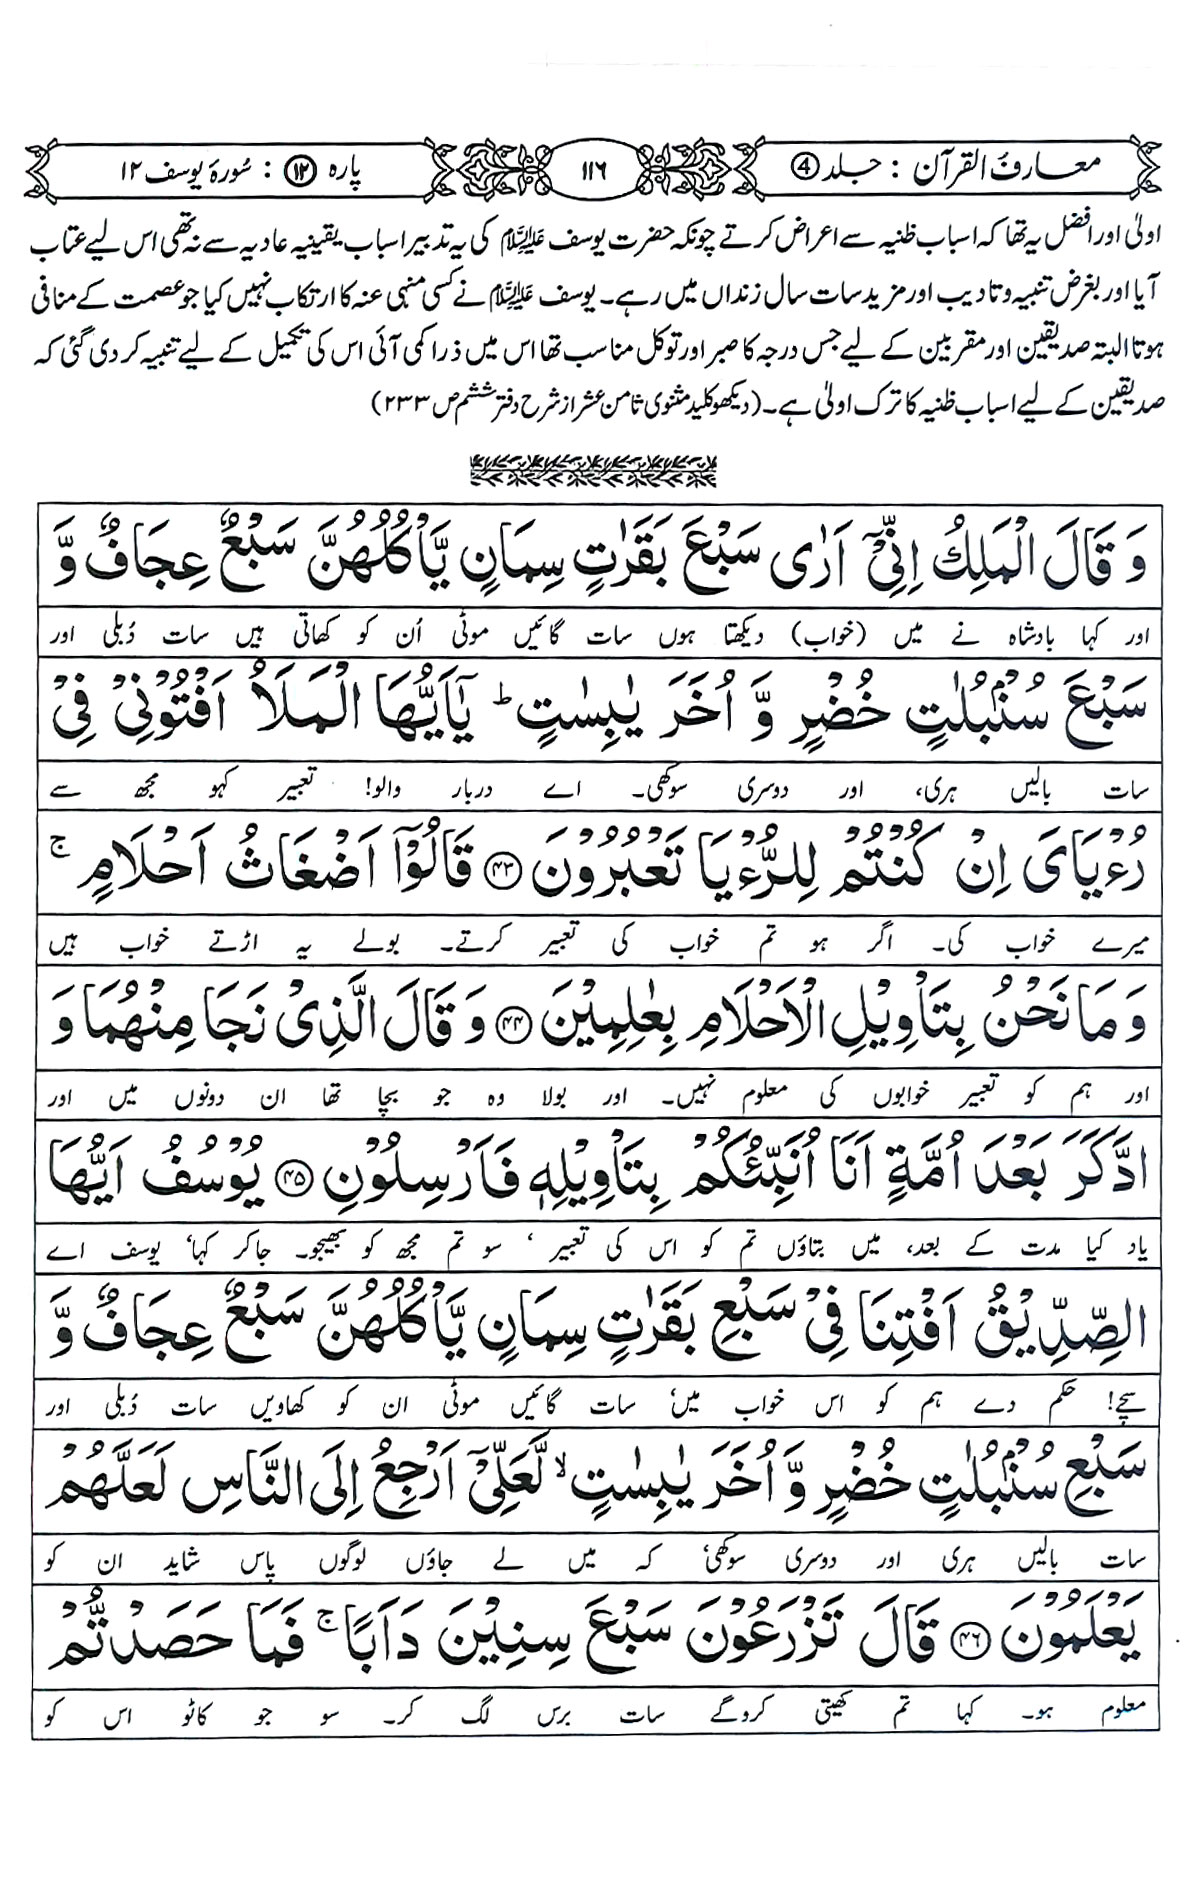 معارف القرآن : جلد ④ ۱۱۶ پارہ ⑫ : سُورۂ یوسف ۱۲
اولیٰ اور افضل یہ تھا کہ اسباب ظنیہ سے اعراض کرتے چونکہ حضرت یوسف علیہ السلام کی یہ تدبیر اسباب یقینیہ عادیہ سے نہ تھی اس لیے عتاب
آیا اور بغرض تنبیہ و تادیب اور مزید سات سال زنداں میں رہے۔ یوسف علیہ السلام نے کسی منہی عنہ کا ارتکاب نہیں کیا جو عصمت کے منافی
ہوتا البتہ صدیقین اور مقربین کے لیے جس درجہ کا صبر اور توکل مناسب تھا اس میں ذرا کمی آئی اس کی تکمیل کے لیے تنبیہ کر دی گئی کہ
صدیقین کے لیے اسباب ظنیہ کا ترک اولیٰ ہے۔ (دیکھو کلید مثنوی ثامن عشر از شرح دفتر ششم ص ۲۳۳)
وَ قَالَ الْمَلِكُ اِنِّیْۤ اَرٰی سَبْعَ بَقَرٰتٍ سِمَانٍ یَّاْكُلُهُنَّ سَبْعٌ عِجَافٌ وَّ
اور کہا بادشاہ نے میں (خواب) دیکھتا ہوں سات گائیں موٹی اُن کو کھاتی ہیں سات دُبلی اور
سَبْعَ سُنْۢبُلٰتٍ خُضْرٍ وَّ اُخَرَ یٰبِسٰتٍ ؕ یٰۤاَیُّهَا الْمَلَاُ اَفْتُوْنِیْ فِیْ
سات بالیں ہری، اور دوسری سوکھی۔ اے دربار والو! تعبیر کہو مجھ سے
رُءْیَایَ اِنْ كُنْتُمْ لِلرُّءْیَا تَعْبُرُوْنَ ﴿۴۳﴾ قَالُوْۤا اَضْغَاثُ اَحْلَامٍ ۚ
میرے خواب کی۔ اگر ہو تم خواب کی تعبیر کرتے۔ بولے یہ اڑتے خواب ہیں
وَ مَا نَحْنُ بِتَاْوِیْلِ الْاَحْلَامِ بِعٰلِمِیْنَ ﴿۴۴﴾ وَ قَالَ الَّذِیْ نَجَا مِنْهُمَا وَ
اور ہم کو تعبیر خوابوں کی معلوم نہیں۔ اور بولا وہ جو بچا تھا ان دونوں میں اور
ادَّكَرَ بَعْدَ اُمَّةٍ اَنَا اُنَبِّئُكُمْ بِتَاْوِیْلِهٖ فَاَرْسِلُوْنِ ﴿۴۵﴾ یُوْسُفُ اَیُّهَا
یاد کیا مدت کے بعد، میں بتاؤں تم کو اس کی تعبیر ‘ سو تم مجھ کو بھیجو۔ جا کر کہا‘ یوسف اے
الصِّدِّیْقُ اَفْتِنَا فِیْ سَبْعِ بَقَرٰتٍ سِمَانٍ یَّاْكُلُهُنَّ سَبْعٌ عِجَافٌ وَّ
سچے! حکم دے ہم کو اس خواب میں‘ سات گائیں موٹی ان کو کھاویں سات دُبلی اور
سَبْعِ سُنْۢبُلٰتٍ خُضْرٍ وَّ اُخَرَ یٰبِسٰتٍ ۙ لَّعَلِّیْۤ اَرْجِعُ اِلَی النَّاسِ لَعَلَّهُمْ
سات بالیں ہری اور دوسری سوکھی‘ کہ میں لے جاؤں لوگوں پاس شاید ان کو
یَعْلَمُوْنَ ﴿۴۶﴾ قَالَ تَزْرَعُوْنَ سَبْعَ سِنِیْنَ دَاَبًا ۚ فَمَا حَصَدْتُّمْ
معلوم ہو۔ کہا تم کھیتی کرو گے سات برس لگ کر۔ سو جو کاٹو اس کو